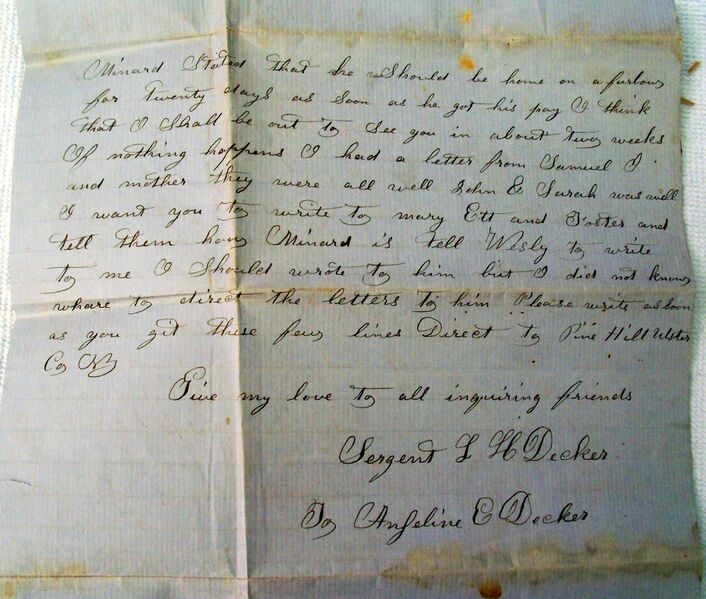 Minard Stated that he Should be home on a furlow
for twenty days as soon as he got his pay I think
that I Shall be out to see you in about two weeks
If nothing happens I had a letter from Samuel I
and mother they were all well John & Sarah was well
I want you to write to mary Ett and Foster and
tell them how Minard is tell Wesly to write
to me I Should wrote to him but I did not know
whare to direct the letters to him Please write as soon
as you git these few lines Direct to Pine Hill Ulster
Co NY
Give my love to all inquiring friends
Sergent L H Decker
To Angeline E Decker